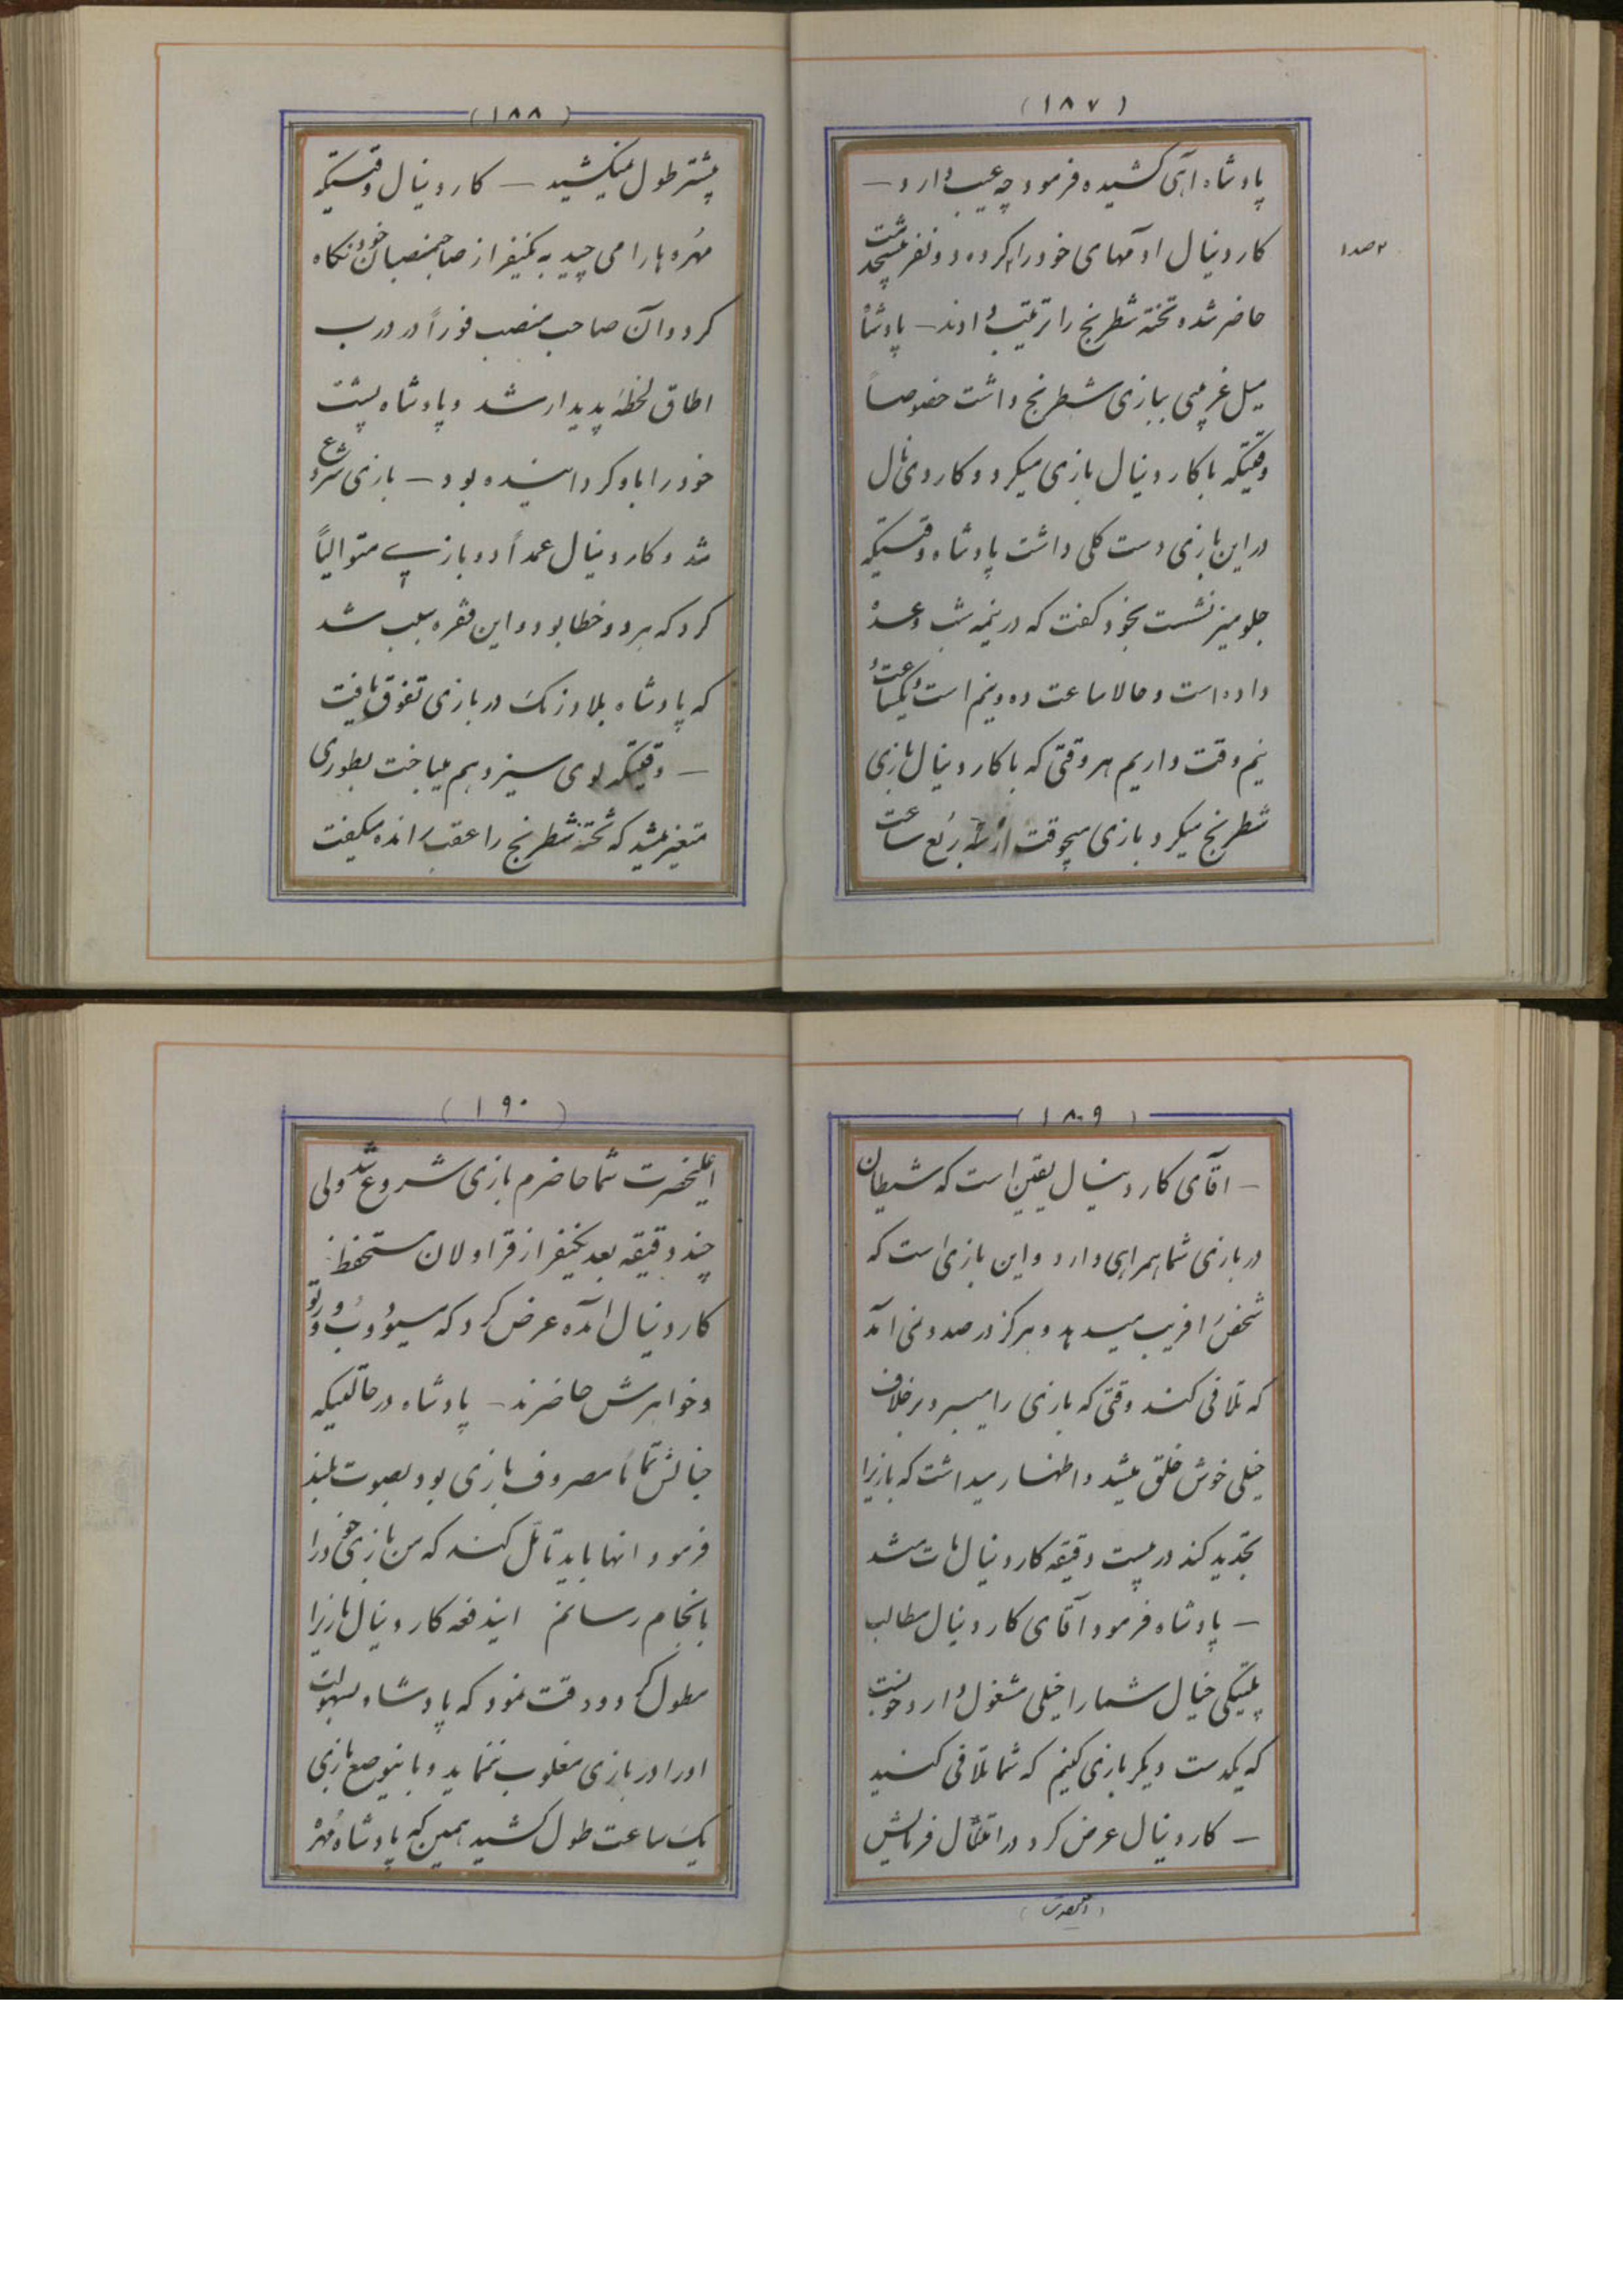 (۱۸۷)
پادشاه آهی کشیده فرمود چه عیب دارد —
کاردینال آدمهای خود را کرده دو نفر پیشخدمت
۲ صدا
حاضر شده تخته شطرنج را ترتیب دادند — پادشاه
میل غریبی ببازی شطرنج داشت خصوصاً
وقتیکه با کاردینال بازی میکرد و کاردینال
در این بازی دست کلی داشت پادشاه وقتیکه
جلو میز نشست بخود گفت که در نیمه شب وعده
داده است و حالا ساعت ده و نیم است و یکساعت و
نیم وقت داریم هر وقتی که با کاردینال بازی
شطرنج میکرد بازی هیچوقت از سه ربع ساعت
(۱۸۸)
بیشتر طول نمیکشید — کاردینال وقتیکه
مهره ها را می چید به یکنفر از صاحبمنصبان خود نگاه
کرد و آن صاحب منصب فوراً در درب
اطاق لحظهٔ پدیدار شد و پادشاه پشت
خود را باو گردانیده بود — بازی شروع
شد و کاردینال عمداً دو بازی متوالیاً
کرد که هر دو خطا بود و این فقره سبب شد
که پادشاه بلادرنگ در بازی تفوق یافت
— وقتیکه لوی سیزدهم میباخت بطوری
متغیر میشد که تخته شطرنج را عقب رانده میگفت
(۱۸۹)
— آقای کاردینال یقین است که شیطان
در بازی شما همراهی دارد و این بازی است که
شخص را فریب میدهد و هرگز در صدد نمی آمد
که تلافی کند وقتی که بازی را میبرد بر خلاف
خیلی خوش خلق میشد و اظهار میداشت که بازیرا
تجدید کند در بیست دقیقه کاردینال مات شد
— پادشاه فرمود آقای کاردینال مطالب
پلتیکی خیال شما را خیلی مشغول دارد خوبست
که یکدست دیگر بازی کنیم که شما تلافی کنید
— کاردینال عرض کرد در امتثال فرمایش
(۱۹۰)
اعلیحضرت شما حاضرم بازی شروع شد ولی
چند دقیقه بعد یکنفر از قراولان مستحفظ
کاردینال آمده عرض کرد که مسیو دوب ورتو
و خواهرش حاضرند — پادشاه در حالتیکه
خیالش تماماً مصروف بازی بود بصوت بلند
فرمود آنها باید تأمل کنند که من بازی خود را
بانجام رسانم ایندفعه کاردینال بازیرا
مطول کرد و دقت نمود که پادشاه بسهولت
او را در بازی مغلوب ننماید و باینوضع بازی
یک ساعت طول کشید همین که پادشاه مهره